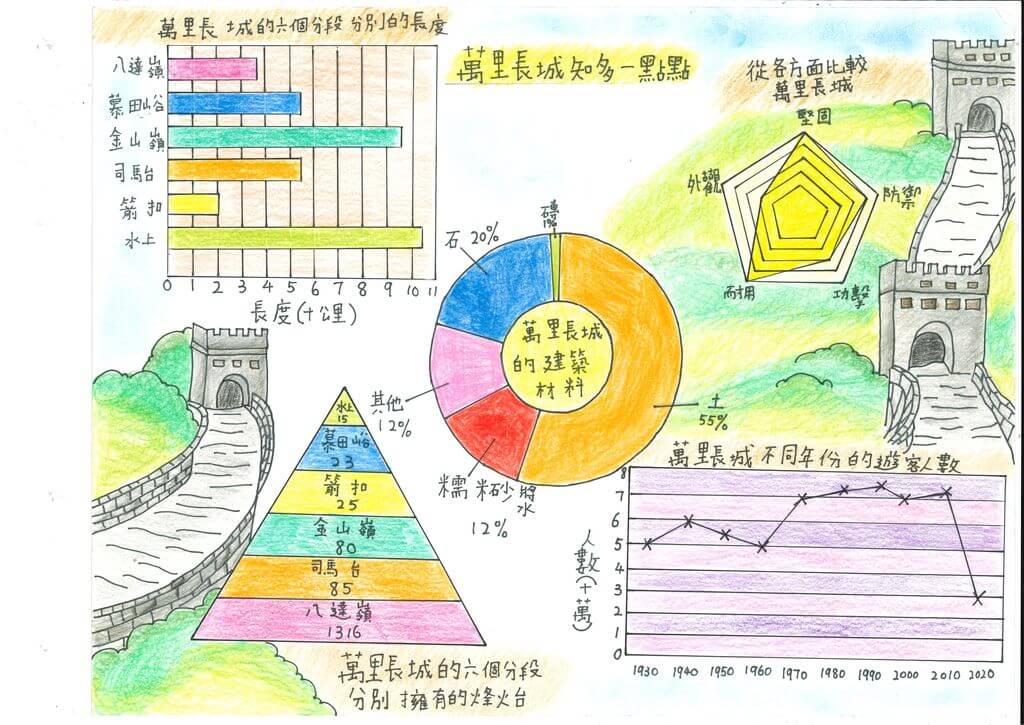 萬里長城的六個分段分別的長度
八達嶺
慕田峪
金山嶺
司馬台
箭扣
水上
0 1 2 3 4 5 6 7 8 9 10 11
長度(十公里)
萬里長城知多一點點
從各方面比較
萬里長城
堅固
外觀
防禦
耐用
功擊
磚
1%
石 20%
其他
12%
糯米砂漿水
12%
土
55%
萬里長城
的建築
材料
水上
15
慕田峪
23
箭扣
25
金山嶺
80
司馬台
85
八達嶺
1316
萬里長城的六個分段
分別擁有的烽火台
萬里長城不同年份的遊客人數
8
7
6
5
4
3
2
1
0
人數(十萬)
1930 1940 1950 1960 1970 1980 1990 2000 2010 2020